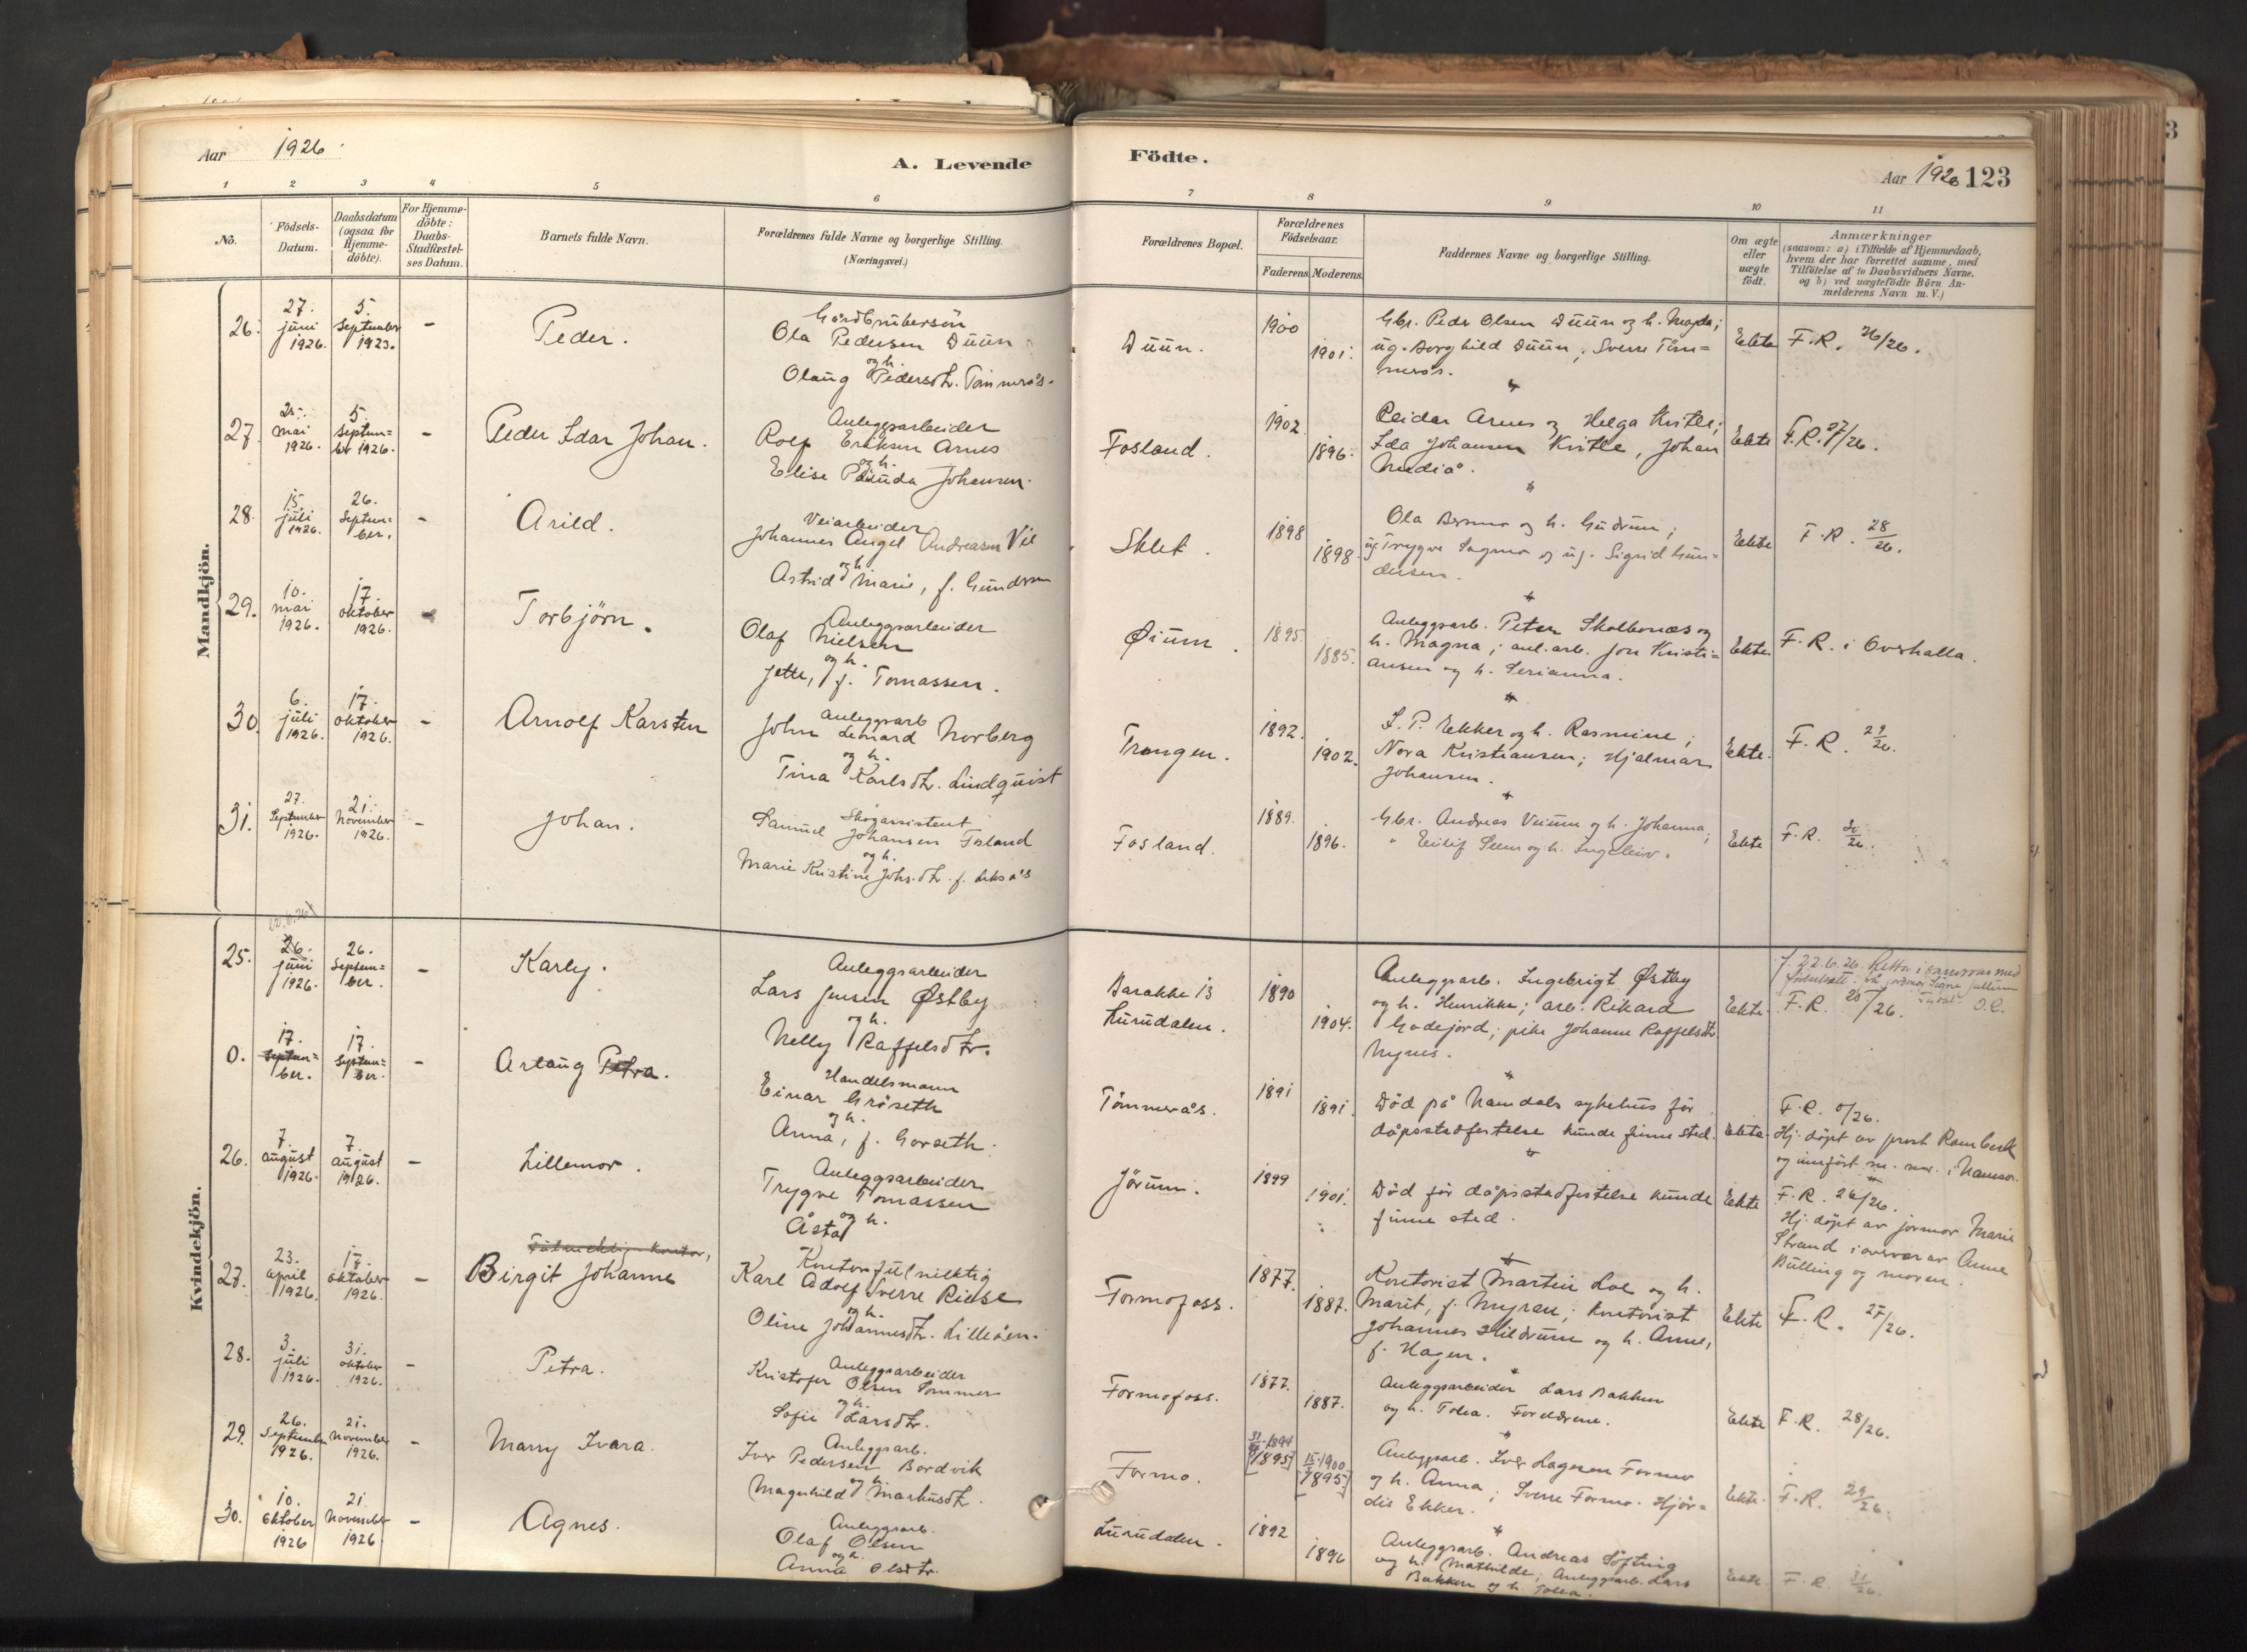 Aar 1926
A. Levende
Födte.
Aar 1926 123
1 2 3 4 5 6 7 8 9 10 11
No.
Födsels-
Datum.
Daabsdatum
(ogsaa for
Hjemme-
döbte).
For Hjemme-
döbte:
Daabs-
Stadfæstel-
ses Datum.
Barnets fulde Navn.
Forældrenes fulde Navne og borgerlige Stilling.
(Næringsvei.)
Forældrenes Bopæl.
Forældrenes
Födselsaar.
Faderens Moderens
Faddernes Navne og borgerlige Stilling.
Om ægte
eller
uægte
födt.
Anmærkninger
(saasom: a) i Tilfælde af Hjemmedaab,
hvem der har forrettet samme, med
Tilföielse af to Daabsvidners Navne.
og b) ved uægtefödte Börn An-
melderens Navn m. V.)
Mandkjön.
26.
27.
juni
1926.
5.
September
1923.
-
Peder.
Ola Pedersen Duun
og h.
Olaug Pedersdtr. Tømmerås.
Duun.
1900
1901.
Gbr. Peder Olsen Duun og h. Magda;
ug. Borghild Duun; Sverre Töm=
merås.
Ekte
F.R. 26/26.
27.
25.
mai
1926.
5.
Septem=
ber 1926.
-
Peder Idar Johan.
Anleggsarbeider
Rolf Eriksen Arnes
og h.
Elise Johansen.
Fosland.
1902
1896.
Reidar Arnes og Helga Kvitle;
Ida Johansen Kvitle, Johan
Mediå.
Ekte
F.R. 27/26.
28.
15.
juli
1926.
26.
Septem=
ber.
-
Arild.
Veiarbeider
Johannes Angel Andreasen Vie
og h.
Astrid Marie, f. Gundersen
Sklet.
1898
1898.
Ola og h. Gudrun;
ug. Trygve og ug. Sigrid Gun=
dersen.
Ekte
F.R. 28/26.
29.
10.
mai
1926.
17.
oktober
1926.
-
Torbjörn.
Anleggsarbeider
Olaf Nielsen
og h.
Jette, f. Tomassen.
Øium.
1895.
1885.
Anleggsarb. Peter Skolbonæs og
h. Magna; anl.arb. Jon Kristi=
ansen og h. Serianna.
Ekte.
F.R. i Overhalla.
30.
6.
juli
1926.
17.
oktober
1926.
-
Arnolf Karsten
Anleggsarb
John Leonard Norberg
og h.
Tina Karlsdtr. Lindquist
Trongen.
1892.
1902.
I. P. Ekker og h. Rasmine;
Nora Kristiansen; Hjalmar
Johansen.
Ekte.
F.R. 29/26.
31.
27.
September
1926.
21.
November
1926.
-
Johan.
Skogassistent
Samuel Johansen Fosland
og h.
Marie Kristine Johs.dtr. f. Leksås
Fosland.
1889.
1896.
Gbr. Andreas Veium og h. Johanna;
" Eilif Seem og h. Ingeleiv.
Ekte
F.R. 30/26.
Kvindekjön.
25.
26.
juni
1926.
26.
Septem=
ber.
-
Karly.
Anleggsarbeider
Lars Jensen Østby
og h.
Nelly Raffelsdtr.
Barakke 13
Lurudalen.
1890
1904.
Anleggsarb. Ingebrigt Østby
og h. Henrikke; arb. Rikard
Godejord; pike Johanne Raffelsdtr.
Mynes.
Ekte.
f. 22.6.26. Rettet i samsvar med
F.R. 25/26. O.R.
0.
17.
Septem=
ber.
17.
Septem=
ber.
-
Aslaug Petra.
Handelsmann
Einar Gröseth
og h.
Anna, f. Gorseth.
Tömmerås.
1891
1891.
Död på Namdals sykehus för
dåpsstadfestelse kunde finne sted.
Ekte.
F.R. 0/26.
Hj. döpt av prost Rambeck
og innfört m. nr. i Namsos.
26.
7.
august
1926.
7.
august
1926.
-
Lillemor.
Anleggsarbeider
Trygve Tomassen
og h.
Åsta
Jörum.
1899
1901.
Död för dåpsstadfestelse kunde
finne sted.
Ekte
F.R. 26/26.
Hj. döpt av jormor Marie
Strand i overvær av Anne
Bulling og moren.
27.
23.
april
1926.
17.
oktober
1926.
-
Birgit Johanne
Kontorfulmektig
Karl Adolf Sverre Riese
og h.
Oline Johannesdtr. Lilleöen.
Formofoss.
1877.
1887.
Kontorist Martin Loe og h.
Marit, f. Myran; kontorist
Johannes Hildrum og h. Anne,
f. Hagen.
Ekte
F.R. 27/26.
28.
3.
juli
1926.
31.
oktober
1926.
-
Petra.
Anleggsarbeider
Kristofer Olsen Sommer
og h.
Sofie Larsdtr.
Formofoss.
1877.
1887.
Anleggsarbeider Lars Bakken
og h. Tolea. Foreldrene.
Ekte
F.R. 28/26.
29.
26.
September
1926.
21.
November
1926.
-
Marry Ivara.
Anleggsarb.
Iver Pedersen Bordvik
og h.
Magnhild Markusdtr.
Formo.
1894
[1895]
1900
[1895]
Anleggsarb. Iver Lagesen Formo
og h. Anna; Sverre Formo. Hjör=
dis Ekker.
Ekte.
F.R. 29/26.
30.
10.
oktober
1926
21.
November
1926.
-
Agnes.
Anleggsarb.
Olaf Olsen
og h.
Anna Olsdtr.
Lurudalen.
1892
1896
Anleggsarb. Andreas Söfting
og h. Mathilde; Anleggsarb. Lars
Bakken og h. Tolea.
Ekte.
F.R. 31/26.